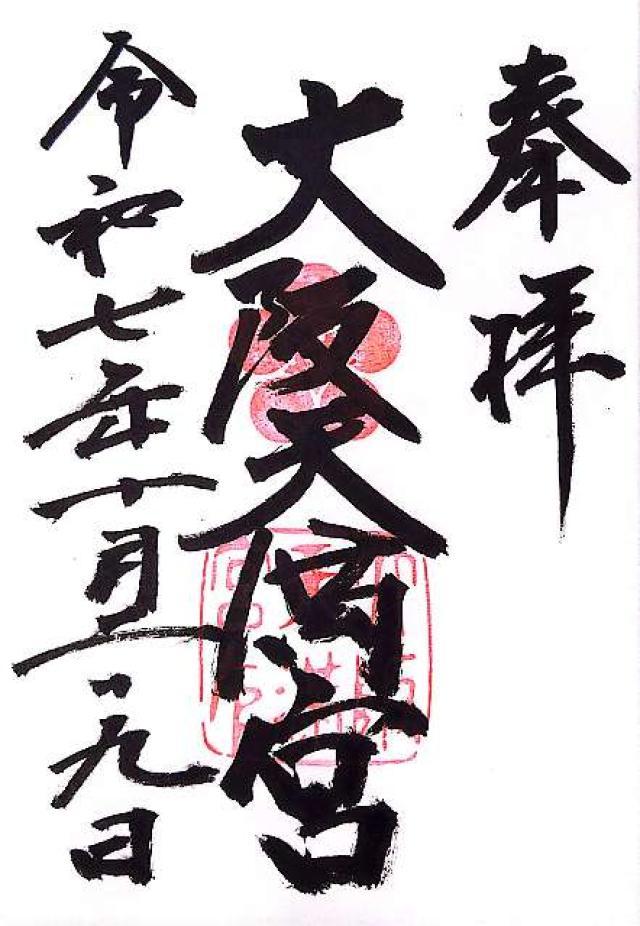 奉拝
大阪天満宮
令和七年十月十九日